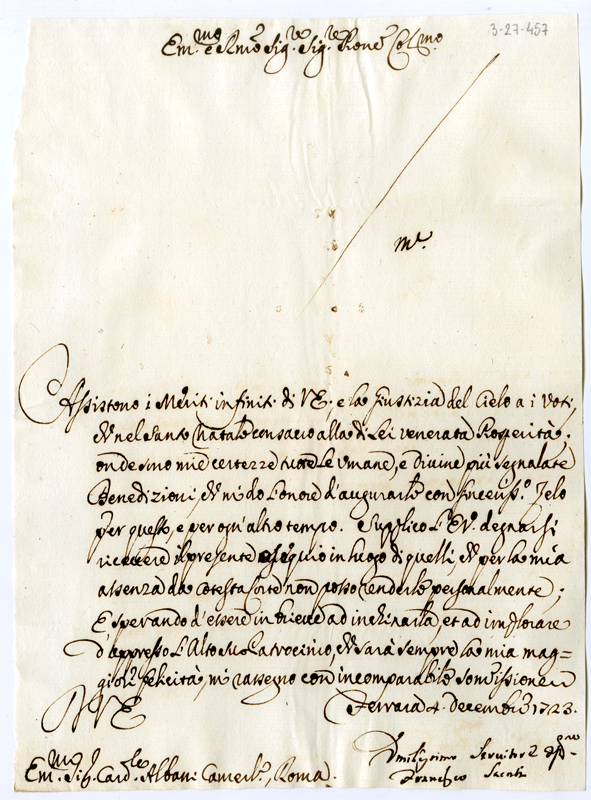 3-27-457
Em.mo e Rmo Sig.r Sig.r Prone Col.mo
m.e
Assistono i Meriti infiniti di V.E., e la Giustizia del Cielo a i Voti,
che nel Santo Natale consacro alla di Lei venerata Prosperità;
onde sono certezze tutte le umane, e divine più segnalate
Benedizioni, che mi do l'onore d'augurarle con sinceriss.o Zelo
per questo, e per ogn'altro tempo. Supplico l'E.V. degnarsi
ricevere il presente ossequio in luogo di quelli, che per la mia
assenza da cotesta Corte non posso renderle personalmente;
E sperando d'essere in breve ad inchinarla, et ad implorare
d'appresso l'Alto suo Patrocinio, che sarà sempre la mia mag=
gior felicità, mi rassegno con incomparabile sommissione
Di V.E.
Ferrara 4. Decembre 1723.
Em.mo Sig. Card.le Albani Camerl.o, Roma.
Umilissimo Servitore
Francesco